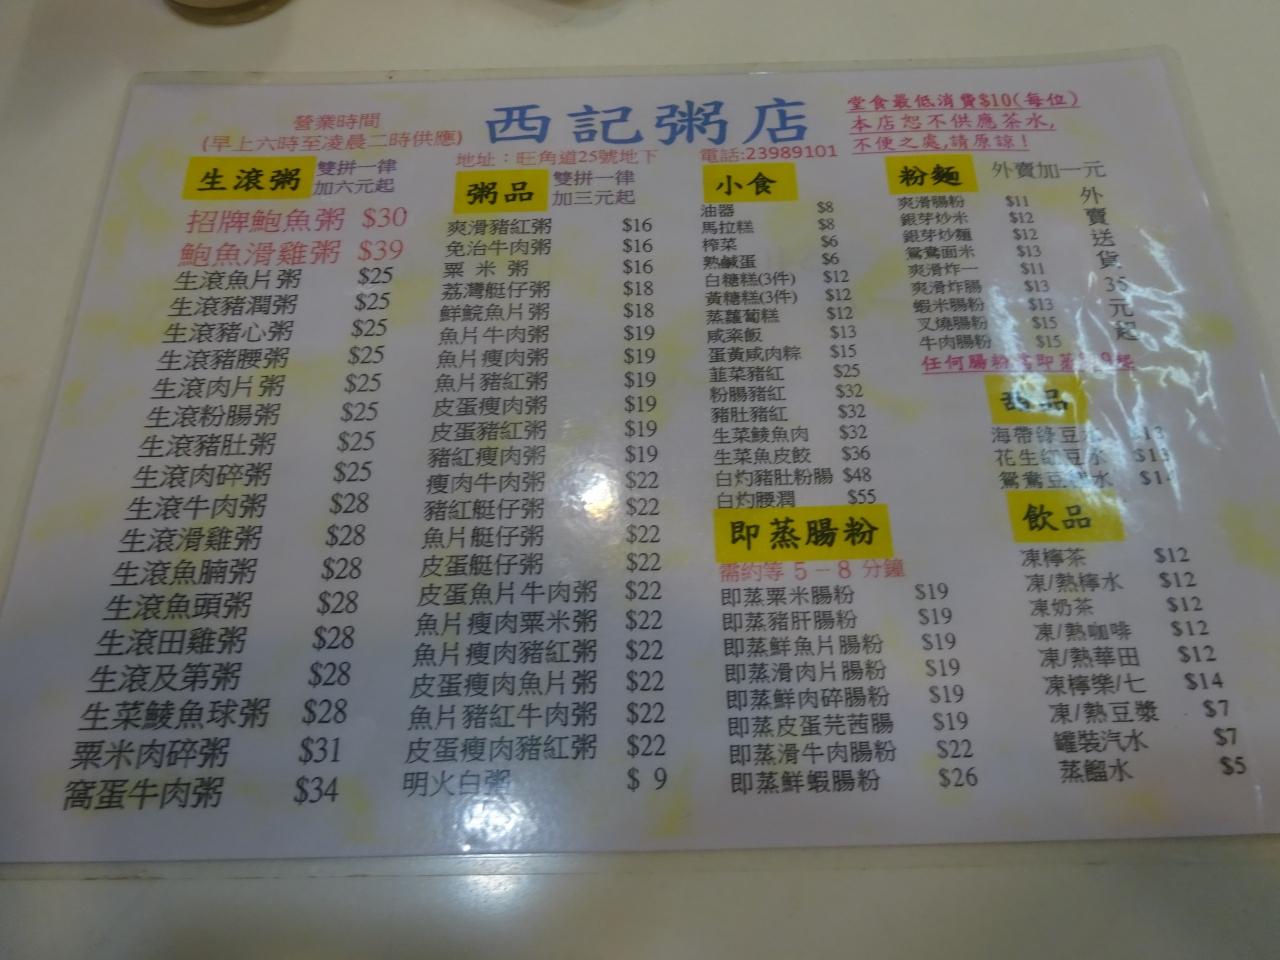 西記粥店
營業時間
(早上六時至凌晨二時供應)
地址：旺角道25號地下
電話:23989101
堂食最低消費$10(每位)
本店恕不供應茶水,
不便之處,請原諒!
生滾粥
雙拼一律
加六元起
招牌鮑魚粥 $30
鮑魚滑雞粥 $39
生滾魚片粥 $25
生滾豬潤粥 $25
生滾豬心粥 $25
生滾豬腰粥 $25
生滾肉片粥 $25
生滾粉腸粥 $25
生滾豬肚粥 $25
生滾肉碎粥 $25
生滾牛肉粥 $28
生滾滑雞粥 $28
生滾魚腩粥 $28
生滾魚頭粥 $28
生滾田雞粥 $28
生滾及第粥 $28
生菜鯪魚球粥 $28
粟米肉碎粥 $31
窩蛋牛肉粥 $34
粥品
雙拼一律
加三元起
爽滑豬紅粥 $16
免治牛肉粥 $16
粟 米 粥 $16
荔灣艇仔粥 $18
鮮鯇魚片粥 $18
魚片牛肉粥 $19
魚片瘦肉粥 $19
魚片豬紅粥 $19
皮蛋瘦肉粥 $19
皮蛋豬紅粥 $19
豬紅瘦肉粥 $19
瘦肉牛肉粥 $22
豬紅艇仔粥 $22
魚片艇仔粥 $22
皮蛋艇仔粥 $22
皮蛋魚片牛肉粥 $22
魚片瘦肉粟米粥 $22
魚片瘦肉豬紅粥 $22
皮蛋瘦肉魚片粥 $22
魚片豬紅牛肉粥 $22
皮蛋瘦肉豬紅粥 $22
明火白粥 $ 9
小食
油器 $8
馬拉糕 $8
榨菜 $6
熟鹹蛋 $6
白糖糕(3件) $12
黃糖糕(3件) $12
蒸蘿蔔糕 $12
咸菜飯 $13
蛋黃咸肉粽 $15
韮菜豬紅 $25
粉腸豬紅 $32
豬肚豬紅 $32
生菜鯪魚肉 $32
生菜魚皮餃 $36
白灼豬肚粉腸 $48
白灼腰潤 $55
即蒸腸粉
需約等 5－8 分鐘
即蒸粟米腸粉 $19
即蒸豬肝腸粉 $19
即蒸鮮魚片腸粉 $19
即蒸滑肉片腸粉 $19
即蒸鮮肉碎腸粉 $19
即蒸皮蛋芫茜腸 $19
即蒸滑牛肉腸粉 $22
即蒸鮮蝦腸粉 $26
粉麵
外賣加一元
爽滑腸粉 $11
銀芽炒米 $12
銀芽炒麵 $12
鴛鴦面米 $13
爽滑炸一 $11
爽滑炸腸 $13
蝦米腸粉 $13
叉燒腸粉 $15
牛肉腸粉 $15
外賣送貨35元起
任何腸粉 即蒸 起
甜品
海帶綠豆水 $13
花生紅豆水 $13
鴛鴦豆 水
飲品
凍檸茶 $12
凍/熱檸水 $12
凍奶茶 $12
凍/熱咖啡 $12
凍/熱華田 $12
凍檸樂/七 $14
凍/熱豆漿 $7
罐裝汽水 $7
蒸餾水 $5